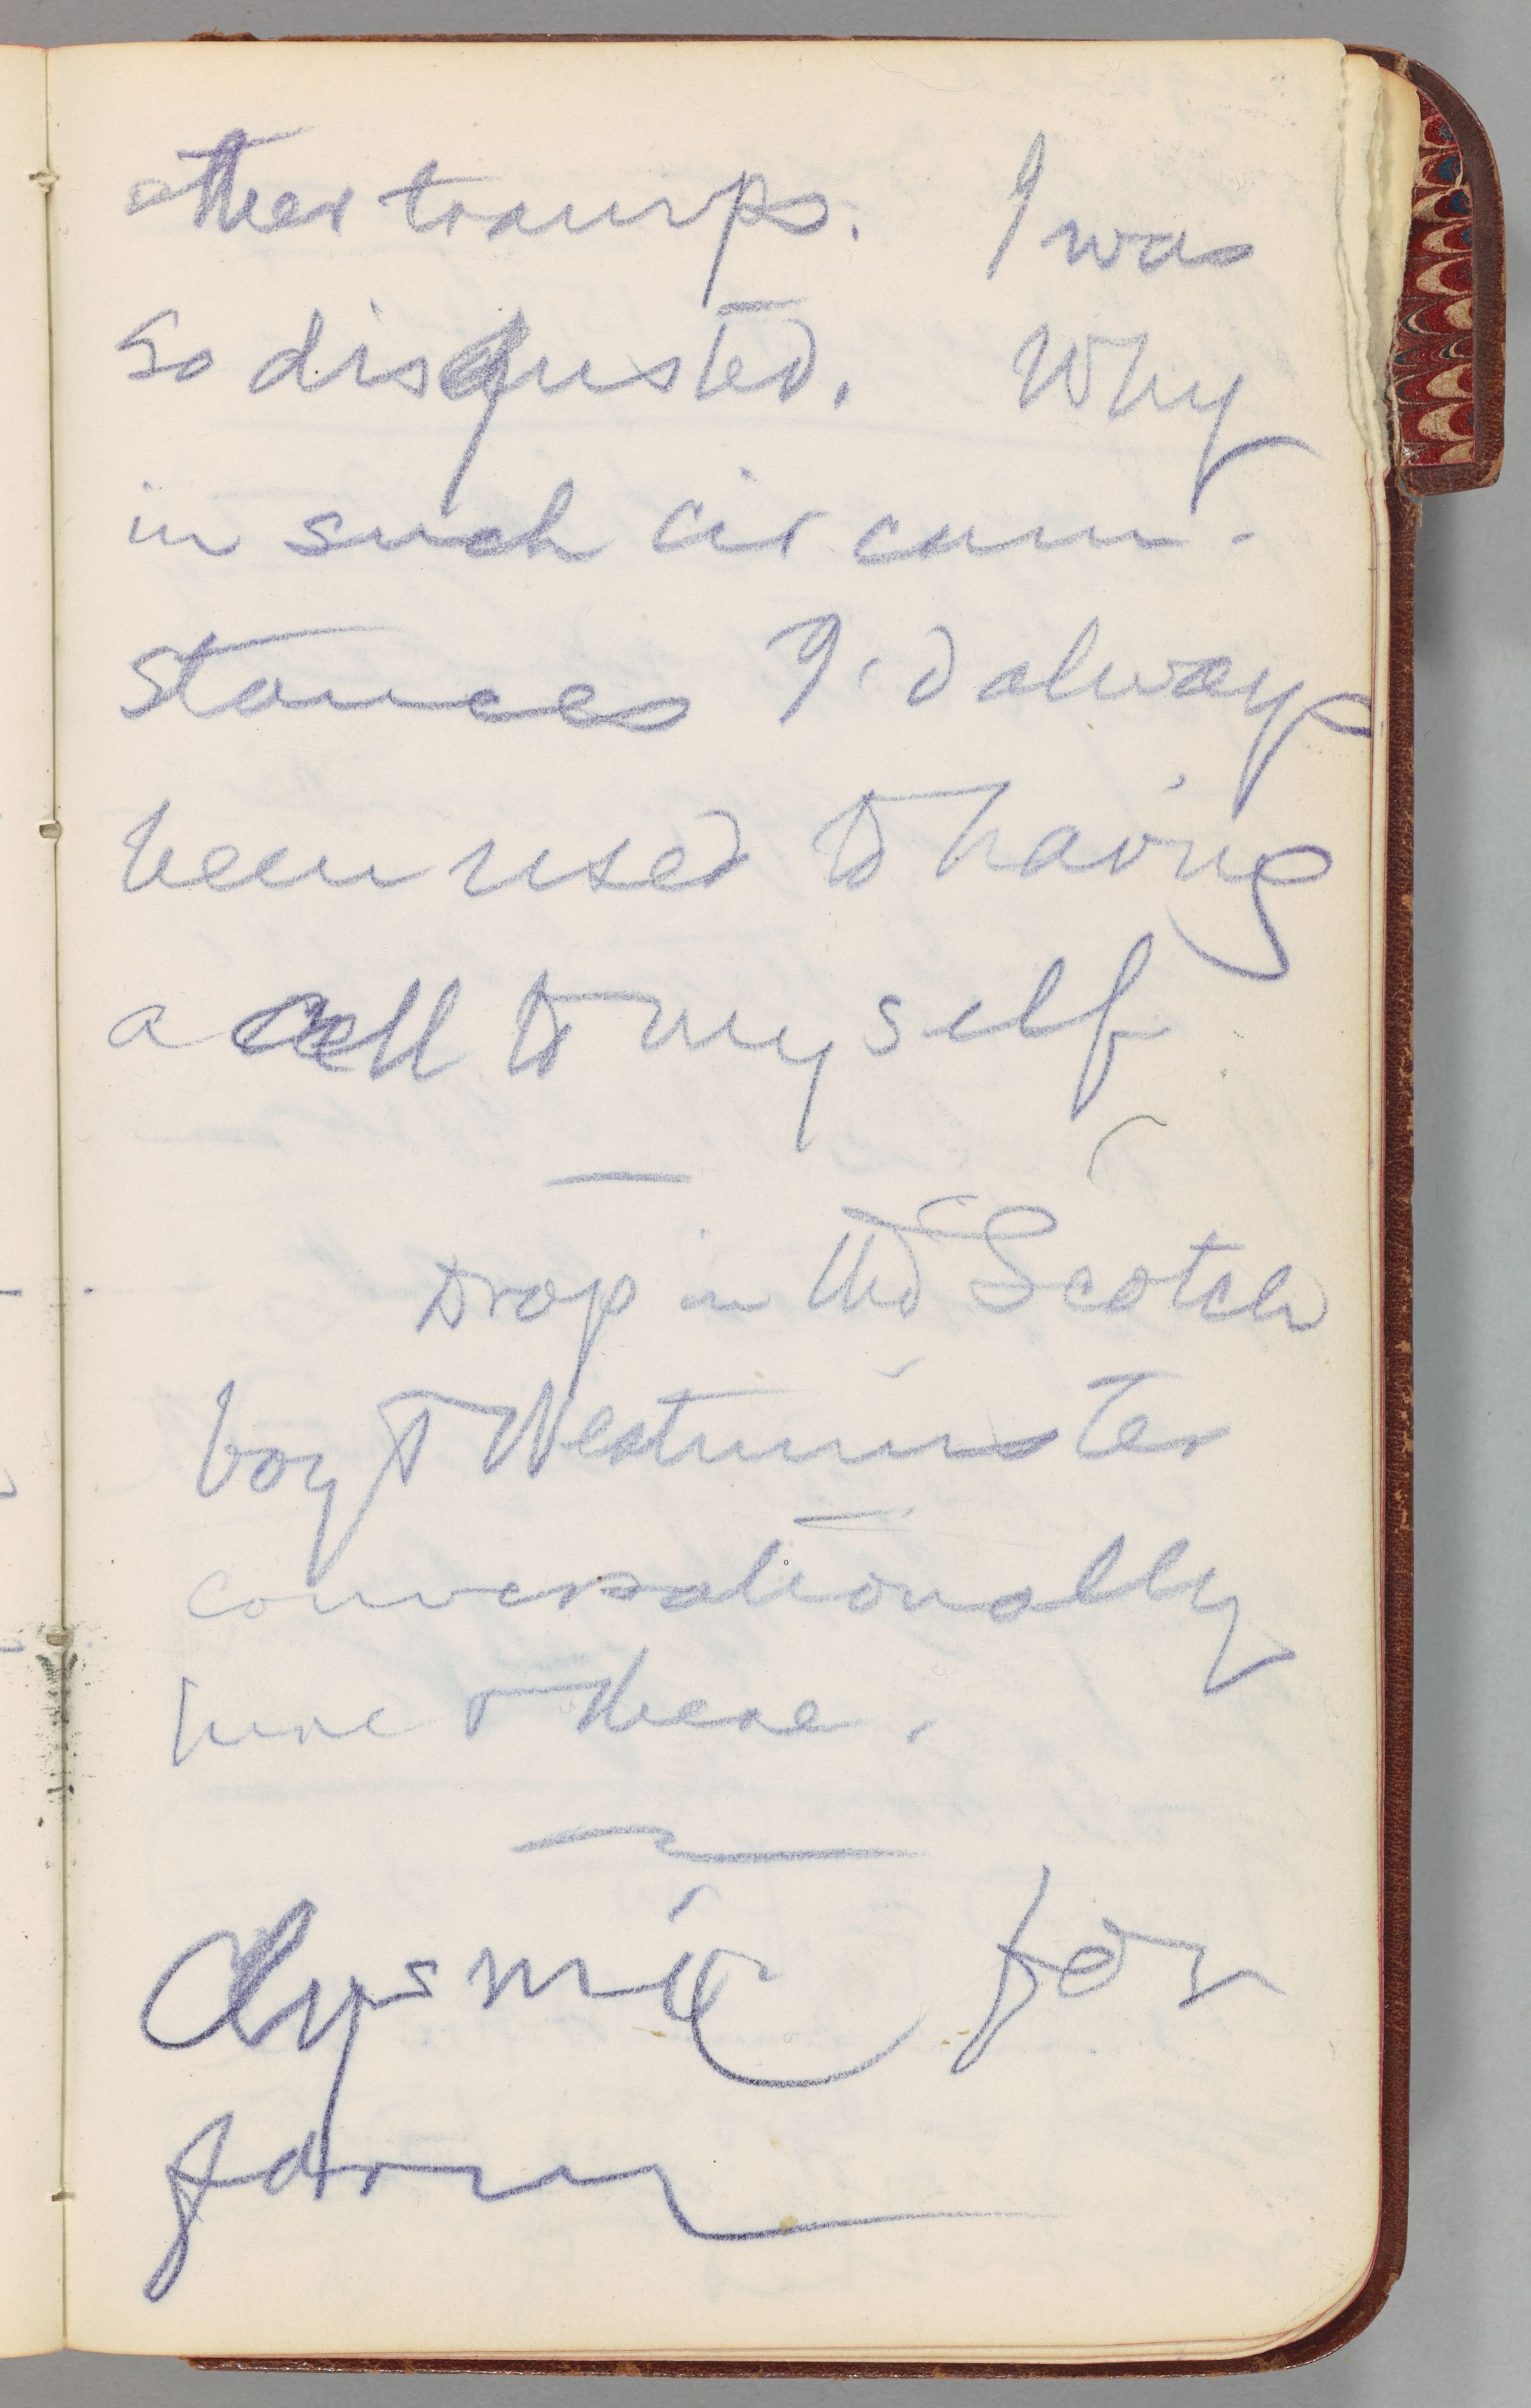 other tramps. I was
so disgusted. Why
in such circum-
stances I'd always
been used to having
a cell to myself
Drop in the Scotch
boy & Westminster
conversationally
here & there.
for
form